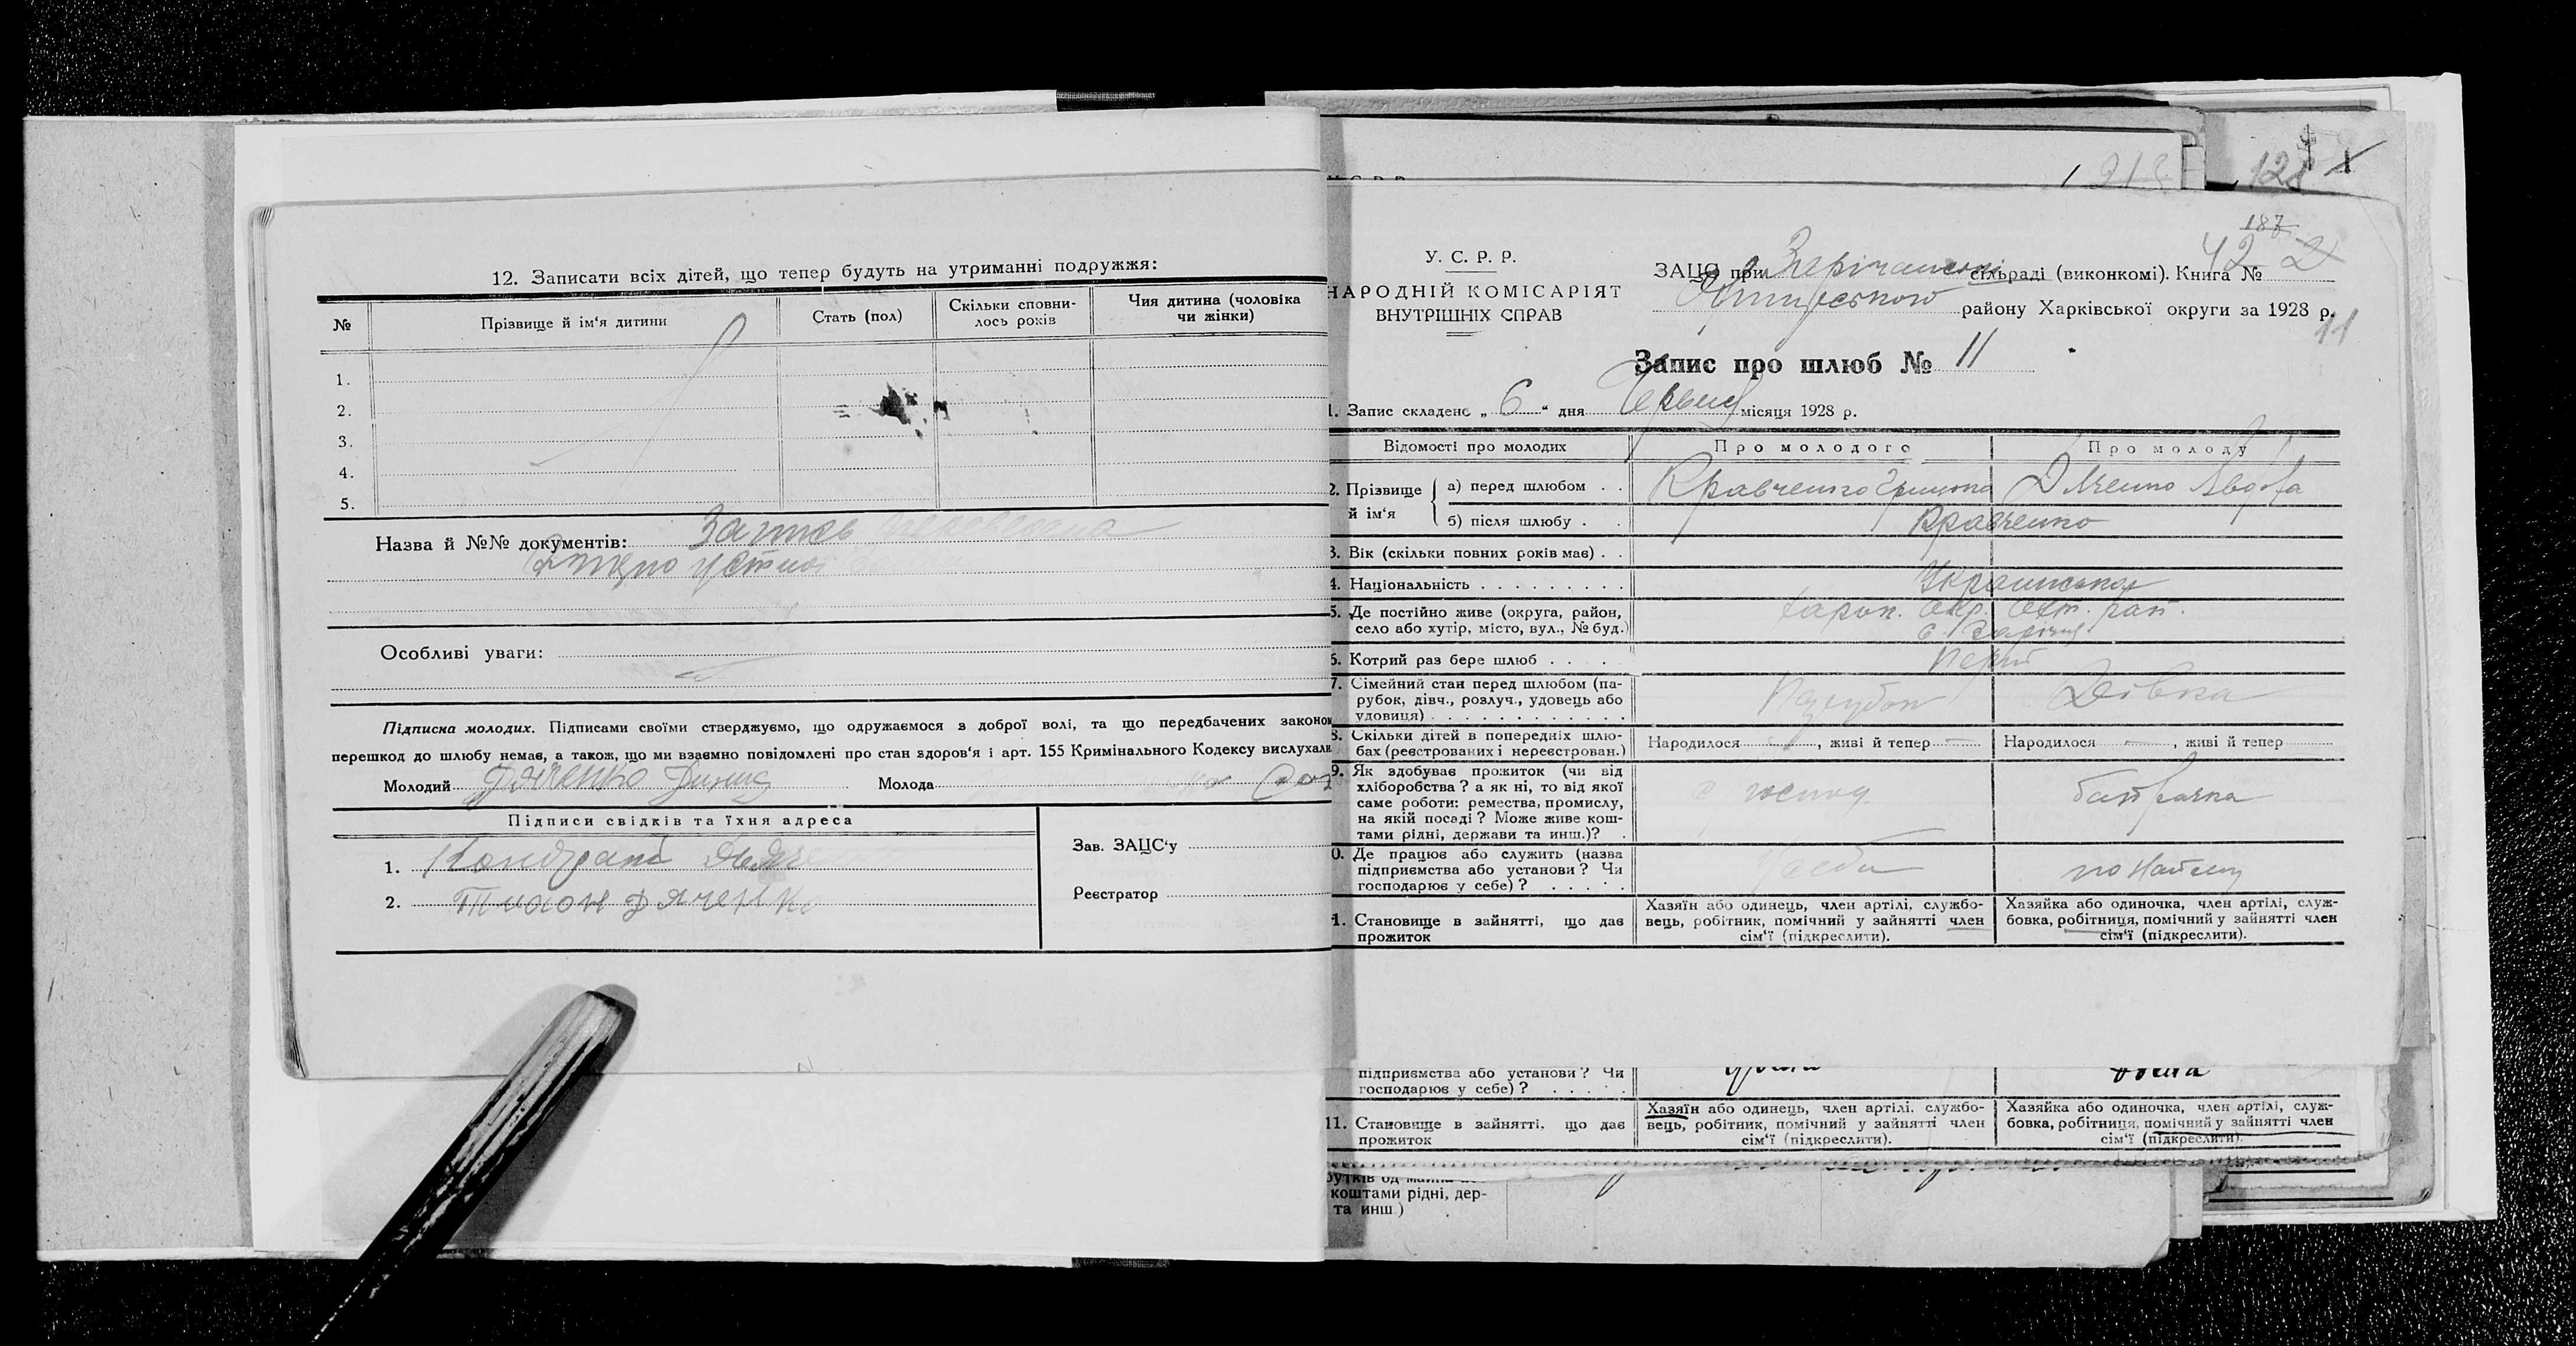 12. Записати всіх дітей, що тепер будуть на утриманні подружжя:
№ Прізвище й ім'я дитини Стать (пол) Скільки сповнилось років Чия дитина (чоловіка чи жінки)
1.
2.
3.
4.
5.
Назва й №№ документів:
Особливі уваги:
Підписка молодих. Підписами своїми стверджуємо, що одружаємося з доброї волі, та що передбачених законом
перешкод до шлюбу немає, а також, що ми взаємно повідомлені про стан здоров'я і арт. 155 Кримінального Кодексу вислухали
Молодий Дяченко Молода
Підписи свідків та їхня адреса
1. Кондрат
2. Тихон Дяченко
Зав. ЗАЦС'у
Реєстратор
187
42
У. С. Р. Р.
НАРОДНІЙ КОМІСАРІЯТ
ВНУТРІШНІХ СПРАВ
ЗАЦС при Зарічанській сільраді (виконкомі). Книга № 2
району Харківської округи за 1928 р.
11
Запис про шлюб № 11
1. Запис складено „ 6 “ дня Червня місяця 1928 р.
Відомості про молодих Про молодого Про молоду
2. Прізвище й ім'я
а) перед шлюбом . . Кравченко Дяченко
б) після шлюбу . . Кравченко
3. Вік (скільки повних років має) . .
4. Національність . . . . . . . . . . Українська
5. Де постійно живе (округа, район,
село або хутір, місто, вул., № буд.)
Харк. Окр. Охт. рай.
6. Котрий раз бере шлюб . . . .
7. Сімейний стан перед шлюбом (па-
рубок, дівч., розлуч., удовець або
удовиця) . . . . . . . . . . . .
Парубок Дівка
8. Скільки дітей в попередніх шлю-
бах (реєстрованих і нереєстрован.)
Народилося — , живі й тепер — Народилося — , живі й тепер
9. Як здобуває прожиток (чи від
хліборобства? а як ні, то від якої
саме роботи: ремества, промислу,
на якій посаді? Може живе кош-
тами рідні, держави та инш.)? .
батрачка
10. Де працює або служить (назва
підприємства або установи? Чи
господарює у себе)? . . . . .
по найму
11. Становище в зайнятті, що дає
прожиток
Хазяїн або одинець, член артілі, службо-
вець, робітник, помічний у зайнятті член
сім'ї (підкреслити).
Хазяйка або одиночка, член артілі, служ-
бовка, робітниця, помічний у зайнятті член
сім'ї (підкреслити).
підприємства або установи? Чи
господарює у себе)? . . . . .
11. Становище в зайнятті, що дає
прожиток
Хазяїн або одинець, член артілі, службо-
вець, робітник, помічний у зайнятті член
сім'ї (підкреслити).
Хазяйка або одиночка, член артілі, служ-
бовка, робітниця, помічний у зайнятті член
сім'ї (підкреслити).
коштами рідні, дер-
та инш.)